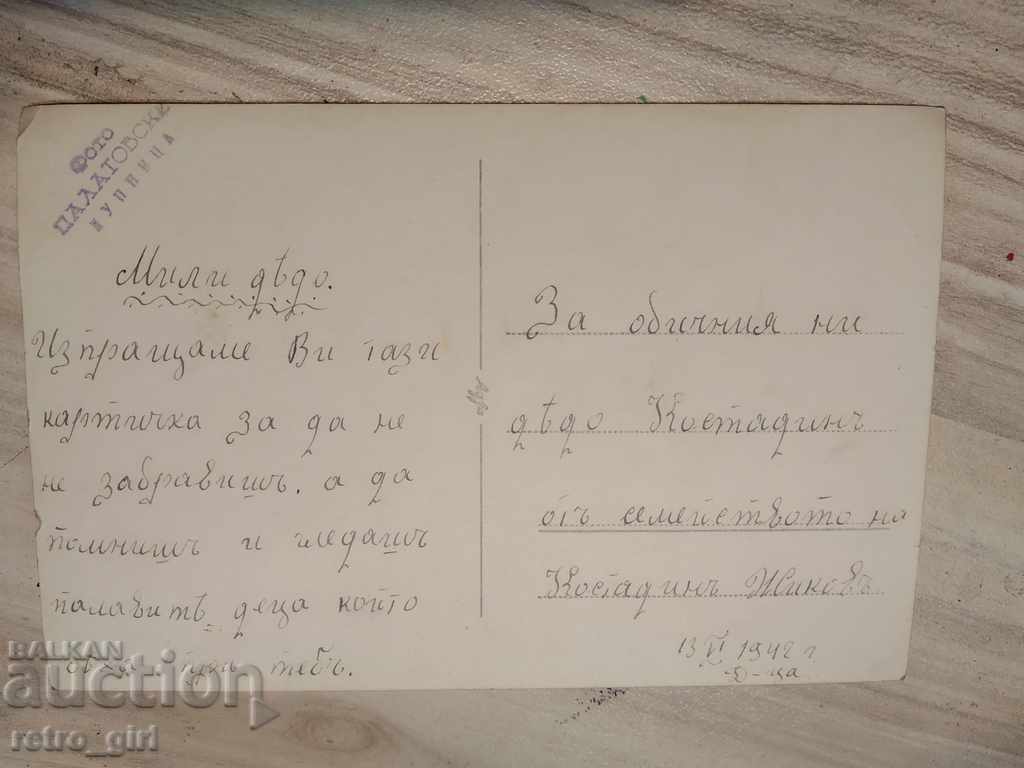 Фото
ПАЛАГОВСКИ
Мили дѣдо.
Изпращаме Ви тази
картичка за да не
не забравишъ. а да
помнишъ и гледашъ
палавитѣ деца който
тебъ.
За обичния ни
дѣдо Костадинъ
отъ семейството на
Костадинъ Жиковъ
13 VI 1942 г
Д-ца
BALKAN
auction
retro_girl